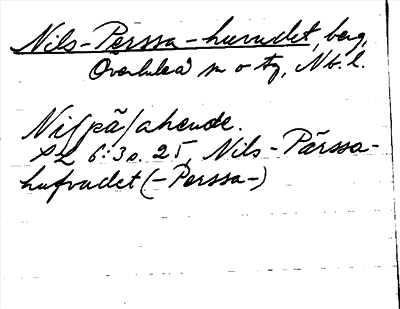 Nils-Perssa-huvudet, berg,
Överluleå sn o tg, Nb. l.
Ni/pä/ahende.
SL 6:3 s. 25, Nils-Pärssa-
hufvudet (-Perssa-)